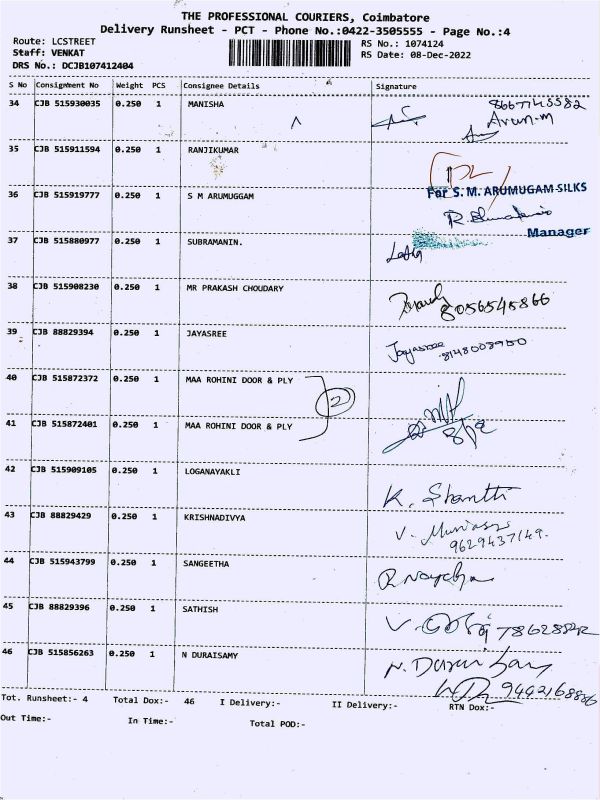 THE PROFESSIONAL COURIERS, Coimbatore
Delivery Runsheet - PCT - Phone No.:0422-3505555 - Page No.:4
Route: LCSTREET
RS No.: 1074124
Staff: VENKAT
RS Date: 08-Dec-2022
DRS No.: DCJB107412404
S No Consignment No Weight PCS Consignee Details Signature
34 CJB 515930035 0.250 1 MANISHA
Arun.m
35 CJB 515911594 0.250 1 RANJIKUMAR
36 CJB 515919777 0.250 1 S M ARUMUGGAM
For S. M. ARUMUGAM SILKS
Manager
37 CJB 515880977 0.250 1 SUBRAMANIN.
38 CJB 515908230 0.250 1 MR PRAKASH CHOUDARY
8056545866
39 CJB 88829394 0.250 1 JAYASREE
Jayasree
8148003950
40 CJB 515872372 0.250 1 MAA ROHINI DOOR & PLY
2
41 CJB 515872401 0.250 1 MAA ROHINI DOOR & PLY
42 CJB 515909105 0.250 1 LOGANAYAKLI
K. Shanthi
43 CJB 88829429 0.250 1 KRISHNADIVYA
9629437149.
44 CJB 515943799 0.250 1 SANGEETHA
45 CJB 88829396 0.250 1 SATHISH
46 CJB 515856263 0.250 1 N DURAISAMY
N. Duraisamy
9442168886
Tot. Runsheet:- 4 Total Dox:- 46 I Delivery:- II Delivery:- RTN Dox:-
Out Time:- In Time:- Total POD:-